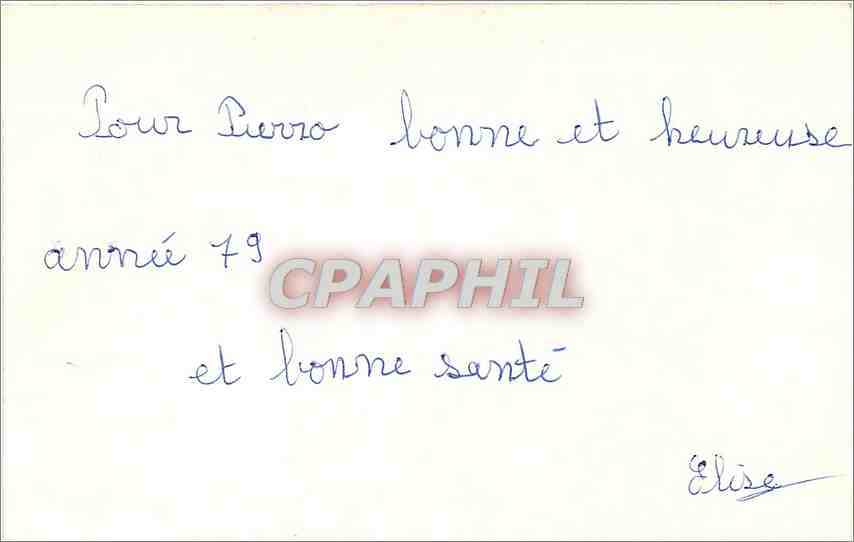 Pour Pierro bonne et heureuse
année 79
CPAPHIL
et bonne santé
Elise